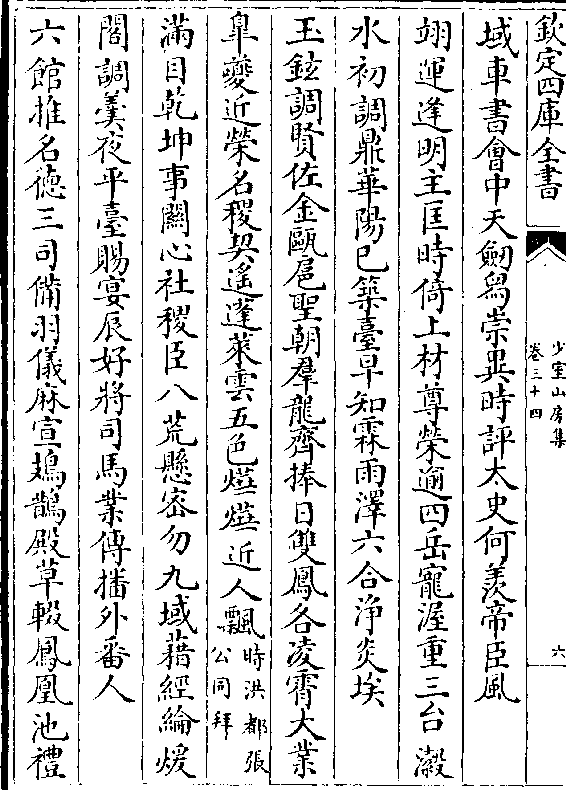 欽定四庫全書
少室山房集
卷三十四
六
域車書會中天劔舄崇異時評太史何羨帝臣風
翊運逢明主匡時倚上材尊榮逾四岳寵渥重三台瀫
水初調鼎華陽已築臺早知霖雨澤六合浄炎埃
玉鉉調賢佐金甌扈聖朝羣龍齊捧日雙鳳各凌霄大業
臯夔近榮名稷契遙蓬萊雲五色爗爗近人飄時洪都張
公同拜
滿目乾坤事闗心社稷臣八荒懸密勿九域藉經綸煖
閣調羮夜平臺賜宴辰好將司馬業傳播外番人
六館推名徳三司備羽儀麻宣鳷鵲殿草輟鳳凰池禮